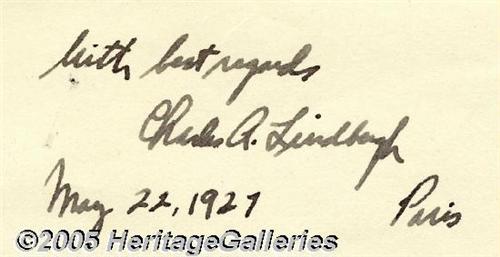 With best regards
Charles A. Lindbergh
May 22, 1927 Paris
©2005 HeritageGalleries